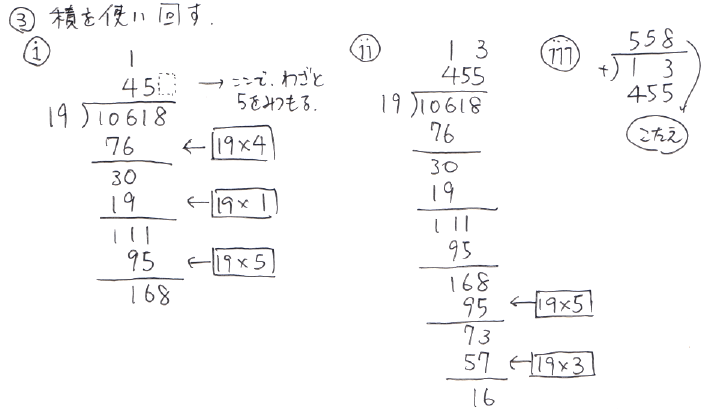 ③ 積を使い回す.
ⅰ
1
45
19)10618
76 ← 19×4
30
19 ← 19×1
111
95 ← 19×5
168
→ ここで、わざと
5をみつもる.
ⅱ
1 3
455
19)10618
76
30
19
111
95
168
95 ← 19×5
73
57 ← 19×3
16
ⅲ
558
+) 1 3
455
こたえ